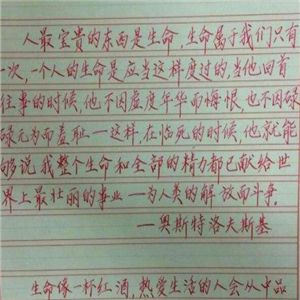 人最宝贵的东西是生命,生命属于我们只有
一次,一个人的生命是应当这样度过的,当他回首
往事的时候,他不因虚度年华而悔恨,也不因碌
碌无为而羞耻——这样,在临死的时候,他就能
够说我整个生命和全部的精力都已献给世
界上最壮丽的事业——为人类的解放而斗争。
——奥斯特洛夫斯基
生命像一杯红酒,热爱生活的人会从中品